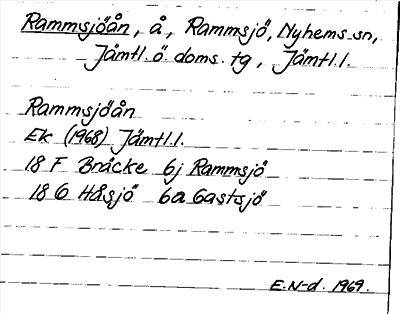 Rammsjöån, å, Rammsjö, Nyhems sn,
Jämtl.ö. doms. tg, Jämtl.l.
Rammsjöån
Ek (1968) Jämtl.l.
18 F Bräcke 6j Rammsjö
18 G Håsjö 6a Gastsjö
E.N-d. 1969.